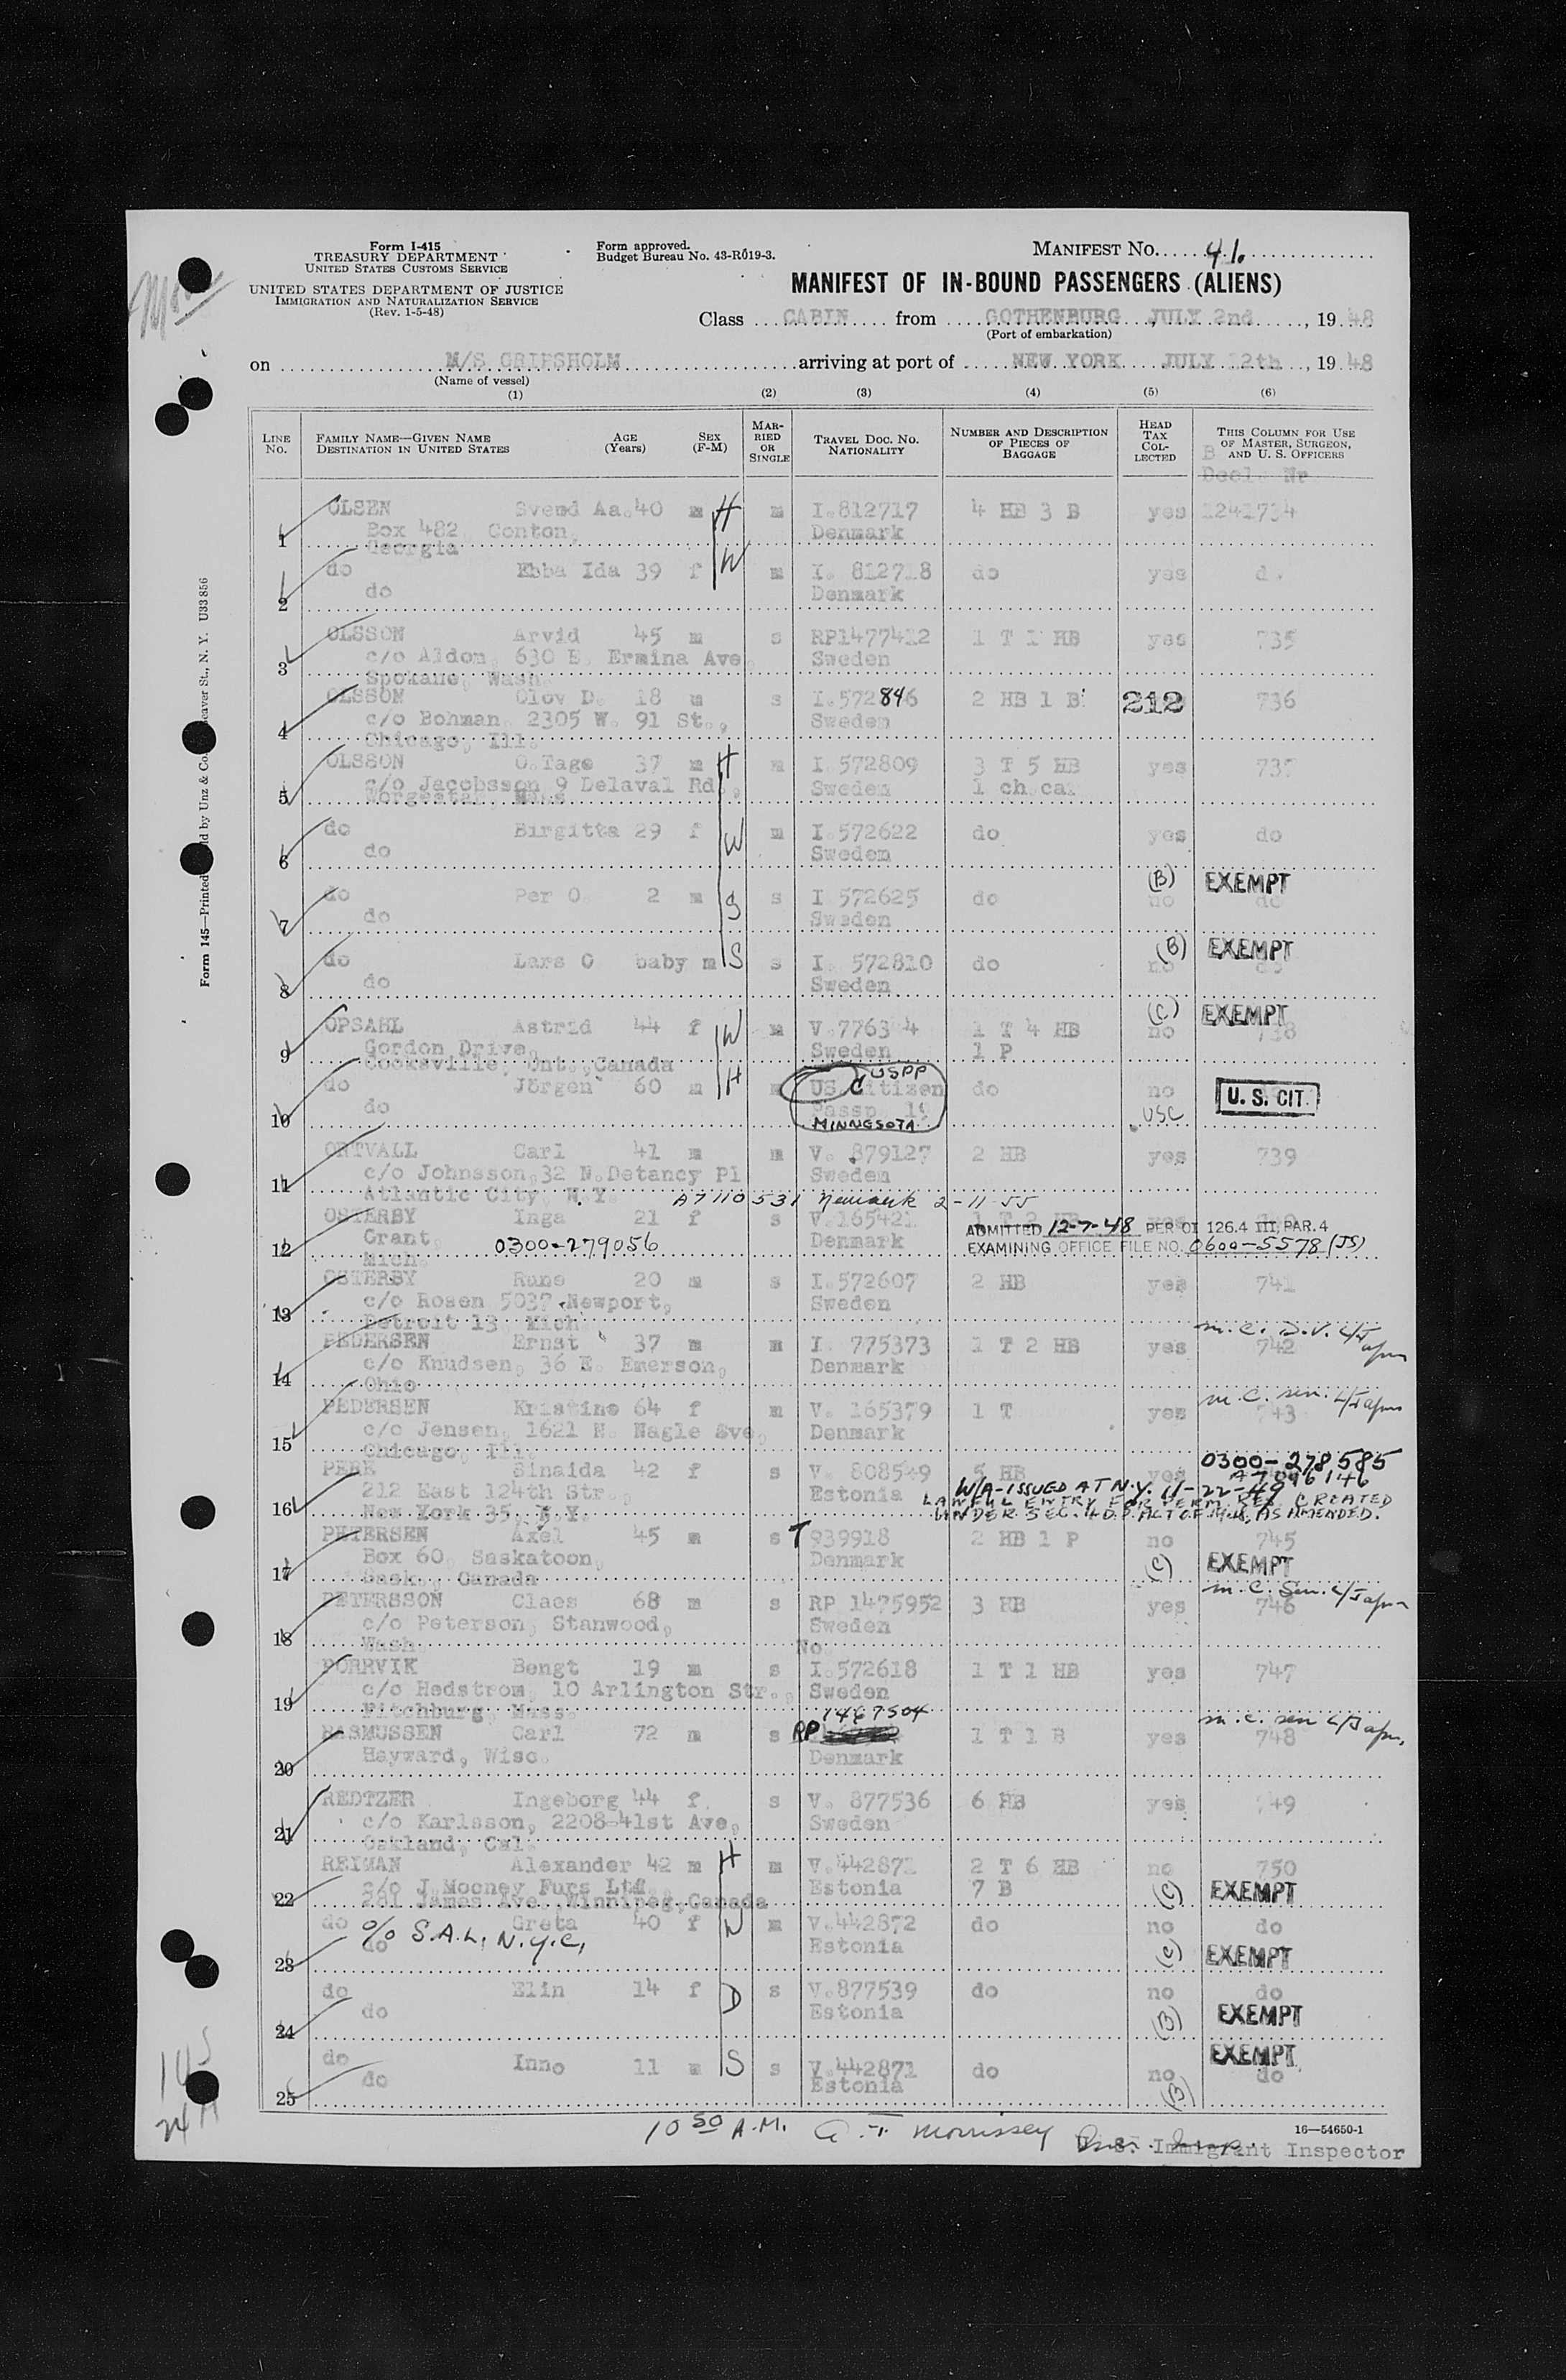 Form I-415
TREASURY DEPARTMENT
UNITED STATES CUSTOMS SERVICE
UNITED STATES DEPARTMENT OF JUSTICE
IMMIGRATION AND NATURALIZATION SERVICE
(Rev. 1-5-48)
Form approved.
Budget Bureau No. 43-R019-3.
MANIFEST NO. 41.
MANIFEST OF IN-BOUND PASSENGERS (ALIENS)
Class CABIN from GOTHENBURG, JULY 2nd, 1948
(Port of embarkation)
on M/S GRIPSHOLM arriving at port of NEW YORK JULY 12th, 1948
(Name of vessel)
(1) (2) (3) (4) (5) (6)
LINE NO. FAMILY NAME—GIVEN NAME DESTINATION IN UNITED STATES AGE (Years) SEX (F-M) MARRIED OR SINGLE TRAVEL DOC. NO. NATIONALITY NUMBER AND DESCRIPTION OF PIECES OF BAGGAGE HEAD TAX COLLECTED THIS COLUMN FOR USE OF MASTER, SURGEON, AND U. S. OFFICERS
B Decl. Nr
OLSEN Svend Aa. 40 m H m I.812717 4 HB 3 B yes 1241734
Box 482, Conton, Denmark
1 Georgia
do Ebba Ida 39 f W m I. 812718 do yes do
do Denmark
2
OLSSON Arvid 45 m s RP1477412 1 T 1 HB yes 735
c/o Aldon, 630 E. Ermina Ave, Sweden
3 Spokane, Wash.
OLSSON Olov D. 18 m s I.572846 2 HB 1 B 212 736
c/o Bohman, 2305 W. 91 St., Sweden
4 Chicago, Ill.
OLSSON O.Tage 37 m H m I.572809 3 T 5 HB yes 737
c/o Jacobsson 9 Delaval Rd, Sweden 1 ch.car
5 Worgester, Mass
do Birgitta 29 f W m I.572622 do yes do
do Sweden
6
(B) EXEMPT
do Per O. 2 m S s I 572625 do no do
do Sweden
7
(B) EXEMPT
do Lars O baby m S s I. 572810 do no do
do Sweden
8
(C) EXEMPT
OPSAHL Astrid 44 f W m V.7763 4 1 T 4 HB no 738
Gordon Drive, Sweden 1 P
9 Cooksville, Ont., Canada
USPP
do Jörgen 60 m H m US Citizen do no U. S. CIT.
do Passp. USC
10 MINNESOTA
ORTVALL Carl 41 m m V. 879127 2 HB yes 739
c/o Johnsson, 32 N.Detancy Pl Sweden
11 Atlantic City, N.Y. A7110531 Newark 2-11-55
OSTERBY Inga 21 f s V.165421 1 T 2 HB ADMITTED 12-7-48 PER OI 126.4 III, PAR. 4
Grant, 0300-279056 Denmark EXAMINING OFFICE FILE NO. 0600-5578 (JS)
12 Mich.
OSTERBY Rune 20 m s I.572607 2 HB yes 741
c/o Rosen 5037 Newport, Sweden
13 Detroit 13, Mich
m.c. D.V.
PEDERSEN Ernst 37 m m I. 775373 1 T 2 HB yes 742
c/o Knudsen, 36 E. Emerson, Denmark
14 Ohio
m.c. sen.
PEDERSEN Kristine 64 f m V. 165379 1 T yes 743
c/o Jensen, 1621 N. Nagle Ave, Denmark
15 Chicago, Ill.
0300-278585
A7096146
Sinaida 42 f s V. 808549 5 HB yes
212 East 124th Str., Estonia W/A-ISSUED AT N.Y. 11-22-49
16 New York 35, N.Y. LAWFUL ENTRY FOR PERM. RES. CREATED
UNDER SEC. 4 D.P. ACT OF 1948, AS AMENDED.
PETERSEN Axel 45 m s T 939918 2 HB 1 P no 745
Box 60, Saskatoon, Denmark (C) EXEMPT
17 Sask., Canada
m.c. Sen.
PETERSSON Claes 68 m s RP 1475952 3 HB yes 746
c/o Peterson, Stanwood, Sweden
18 Wash No
PORRVIK Bengt 19 m s I.572618 1 T 1 HB yes 747
c/o Hedstrom, 10 Arlington Str., Sweden
19 Fitchburg, Mass.
1467504 m.c. sen
RASMUSSEN Carl 72 m s RP 1 T 1 B yes 748
Hayward, Wisc. Denmark
20
REDTZER Ingeborg 44 f s V. 877536 6 HB yes 749
c/o Karlsson, 2208-41st Ave, Sweden
21 Oakland, Cal.
REIMAN Alexander 42 m H m V.442871 2 T 6 HB no 750
c/o J.Mooney Furs Ltd. Estonia 7 B (C) EXEMPT
22 281 James Ave., Winnipeg, Canada
do Greta 40 f W m V.442872 do no do
do c/o S.A.L., N.Y.C. Estonia (C) EXEMPT
23
do Elin 14 f D s V.877539 do no do
do Estonia (B) EXEMPT
24
EXEMPT
do Inno 11 m S s V.442871 do no do
do Estonia (B)
25
10 50 A.M. A. T. Morrissey Imm. Insp.
16—54650-1
U.S. Immigrant Inspector
Form 145—Printed
d by Unz & Co.
eaver St., N. Y. U33856